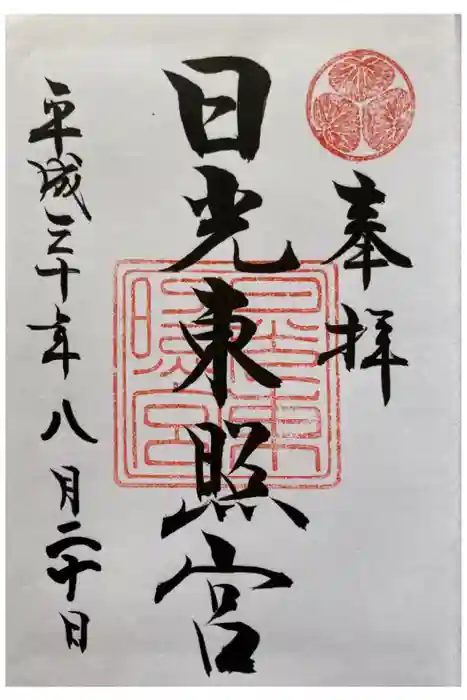 奉拝
日光東照宮
平成三十年八月二十日